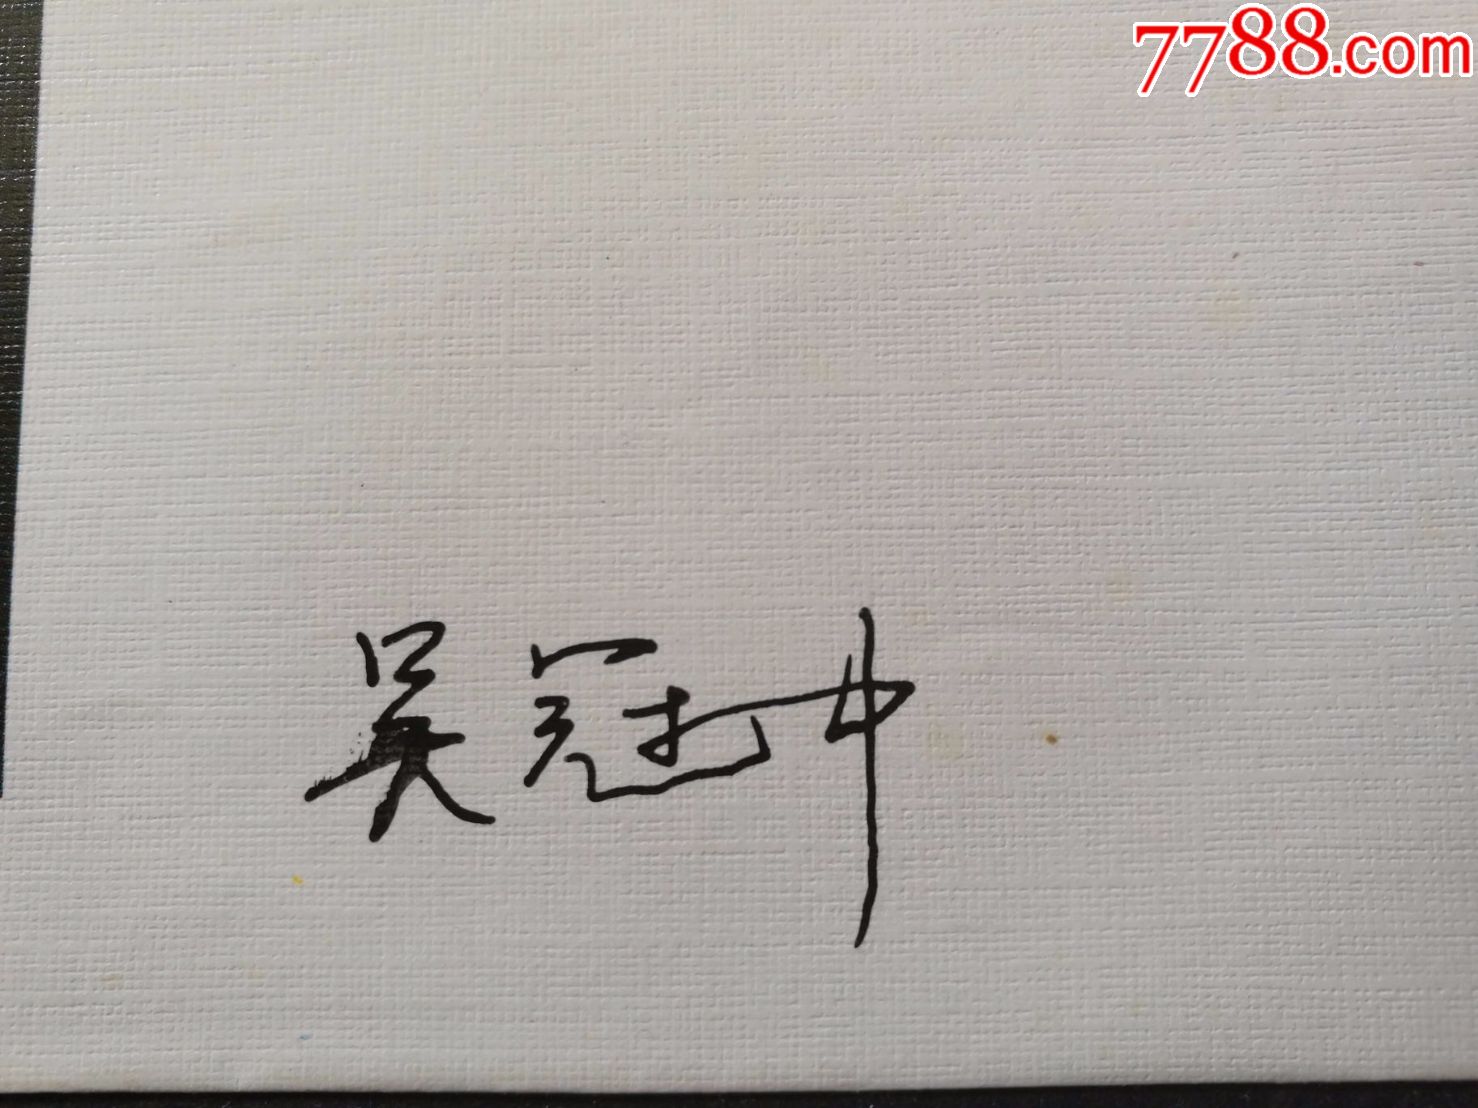 7788.com
吴冠中